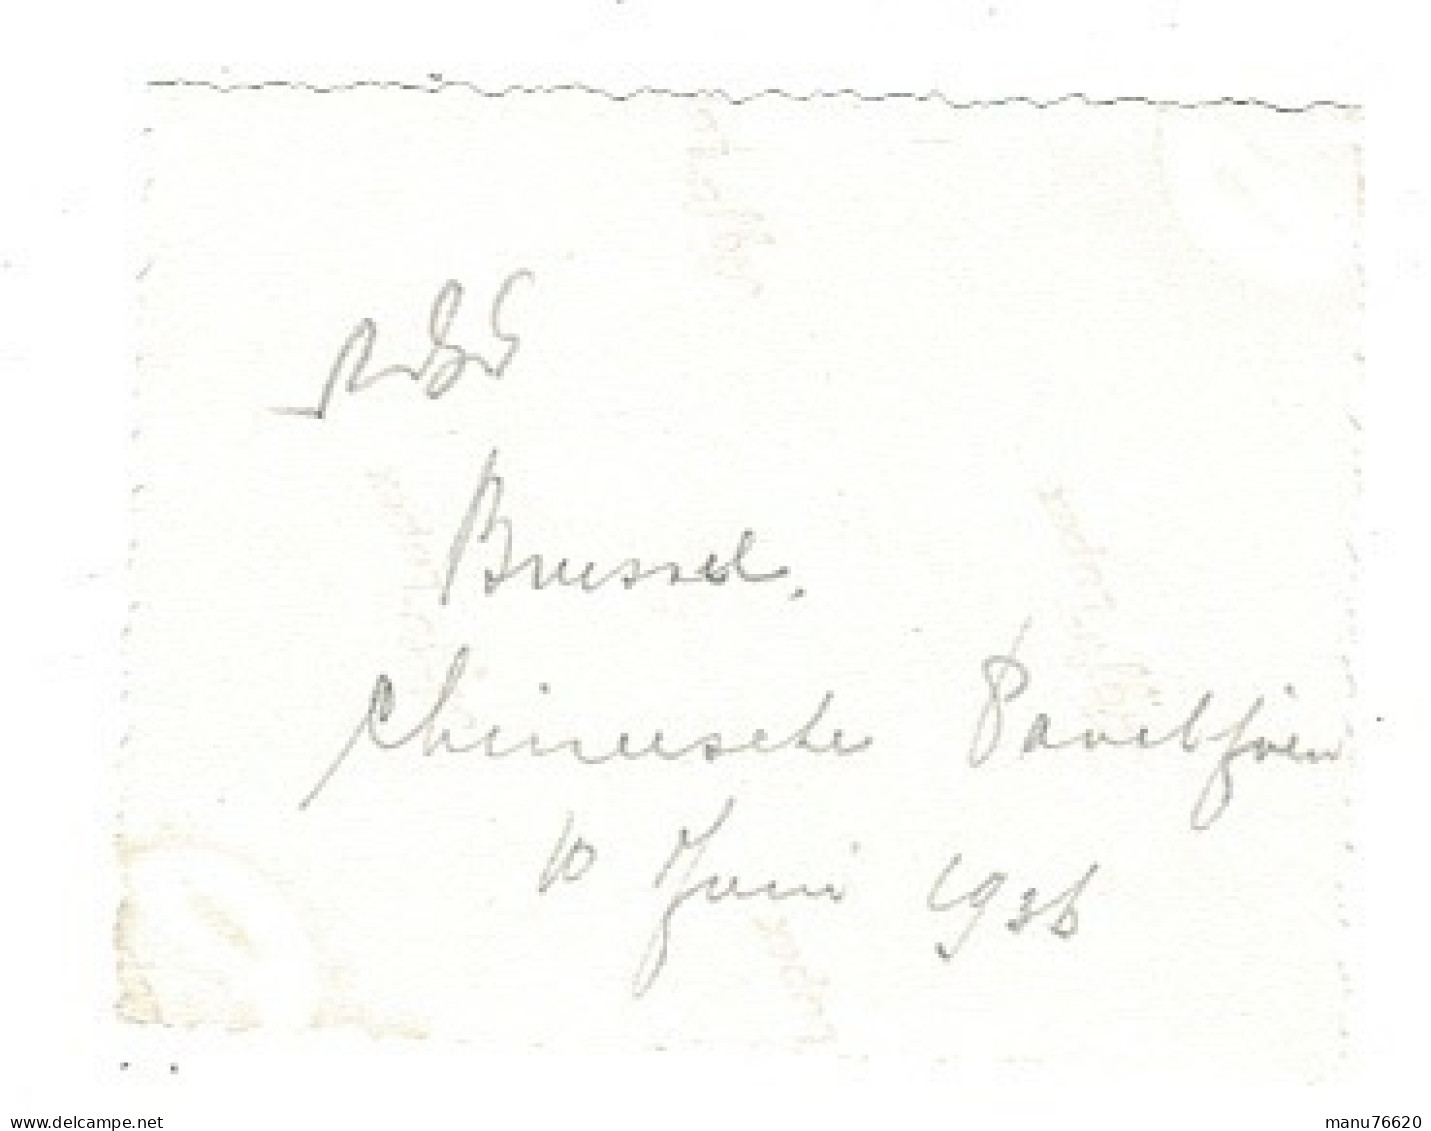 Brussel.
Chineesche Paveljoen
10 Juni 1936
delcampe.net
manu76620